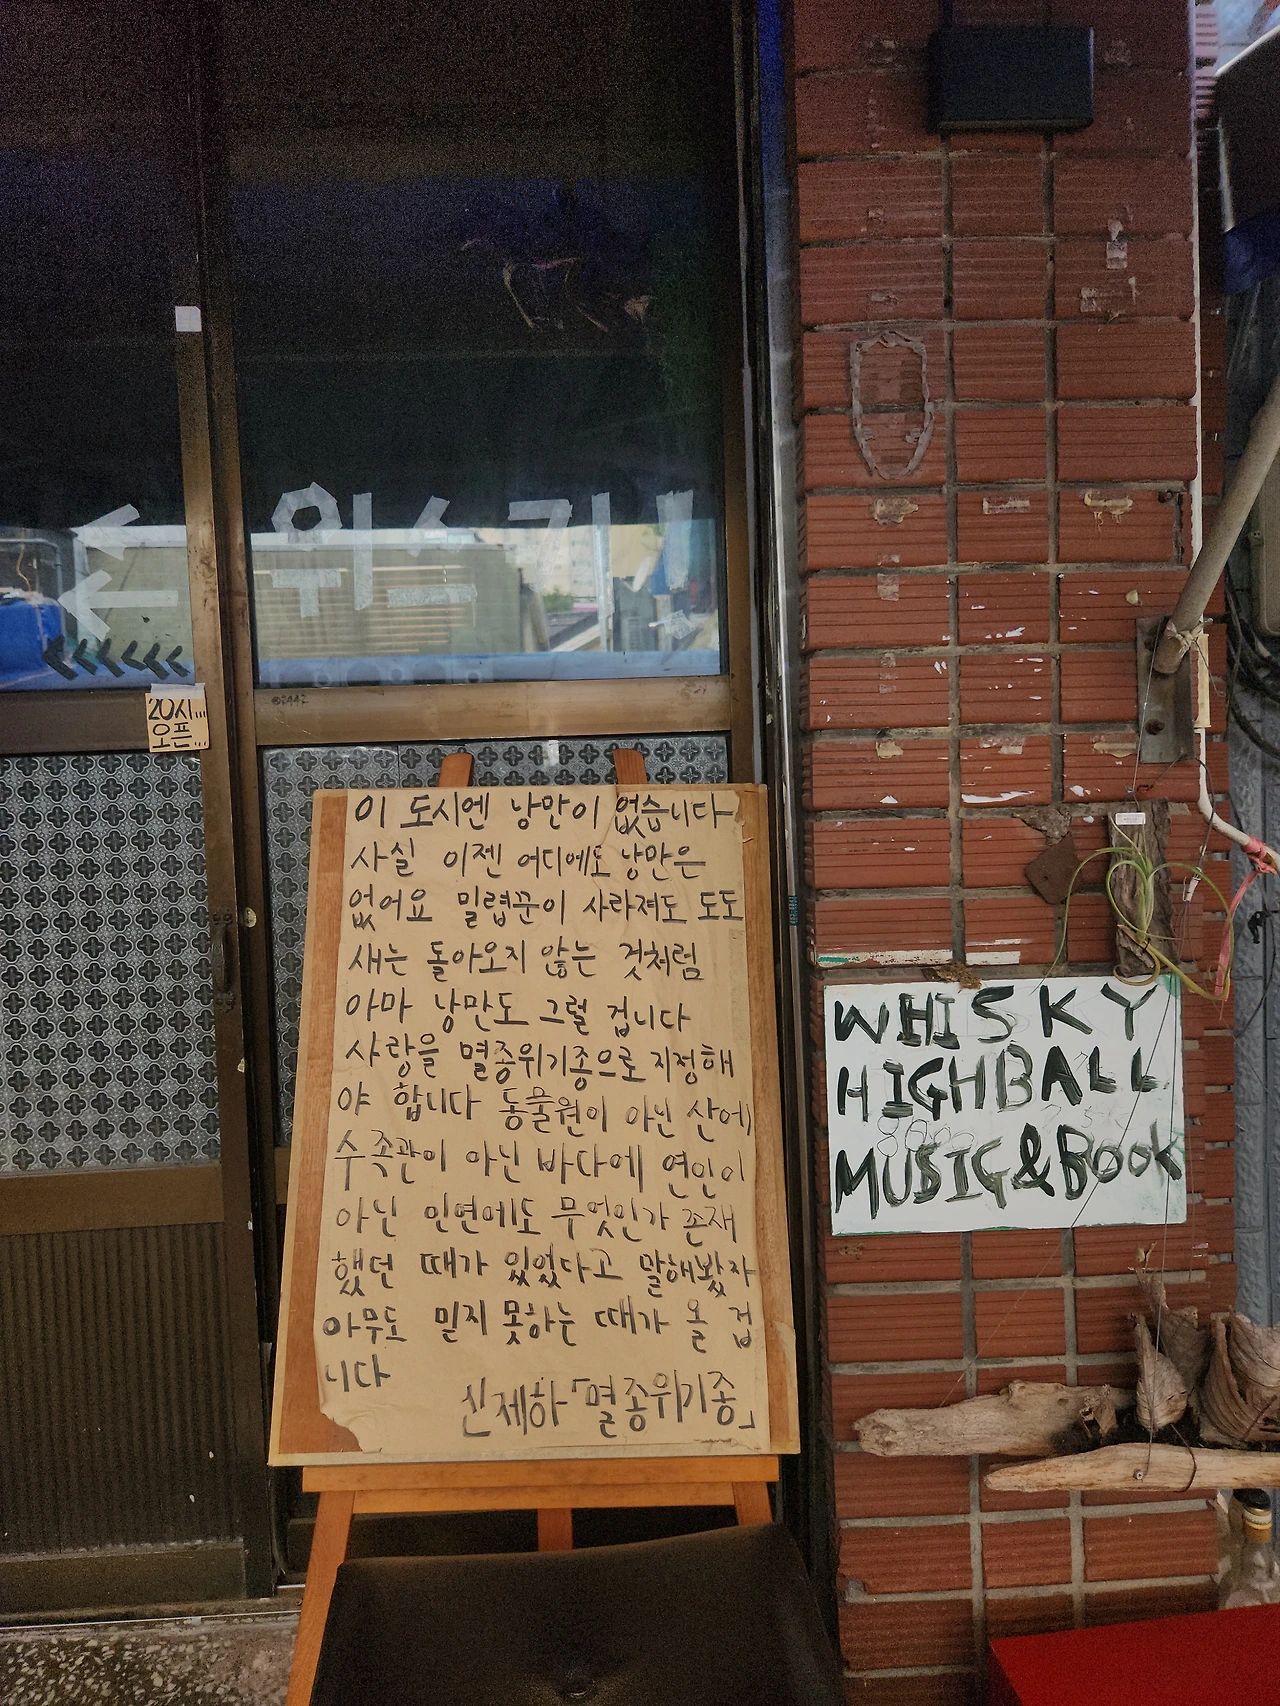 위스키
20시...
오픈...
이 도시엔 낭만이 없습니다
사실 이젠 어디에도 낭만은
없어요 밀렵꾼이 사라져도 도도
새는 돌아오지 않는 것처럼
아마 낭만도 그럴 겁니다
사랑을 멸종위기종으로 지정해
야 합니다 동물원이 아닌 산에
수족관이 아닌 바다에 연인이
아닌 인연에도 무엇인가 존재
했던 때가 있었다고 말해봤자
아무도 믿지 못하는 때가 올 겁
니다
신제하「멸종위기종」
WHISKY
HIGHBALL
MUSIC&BOOK